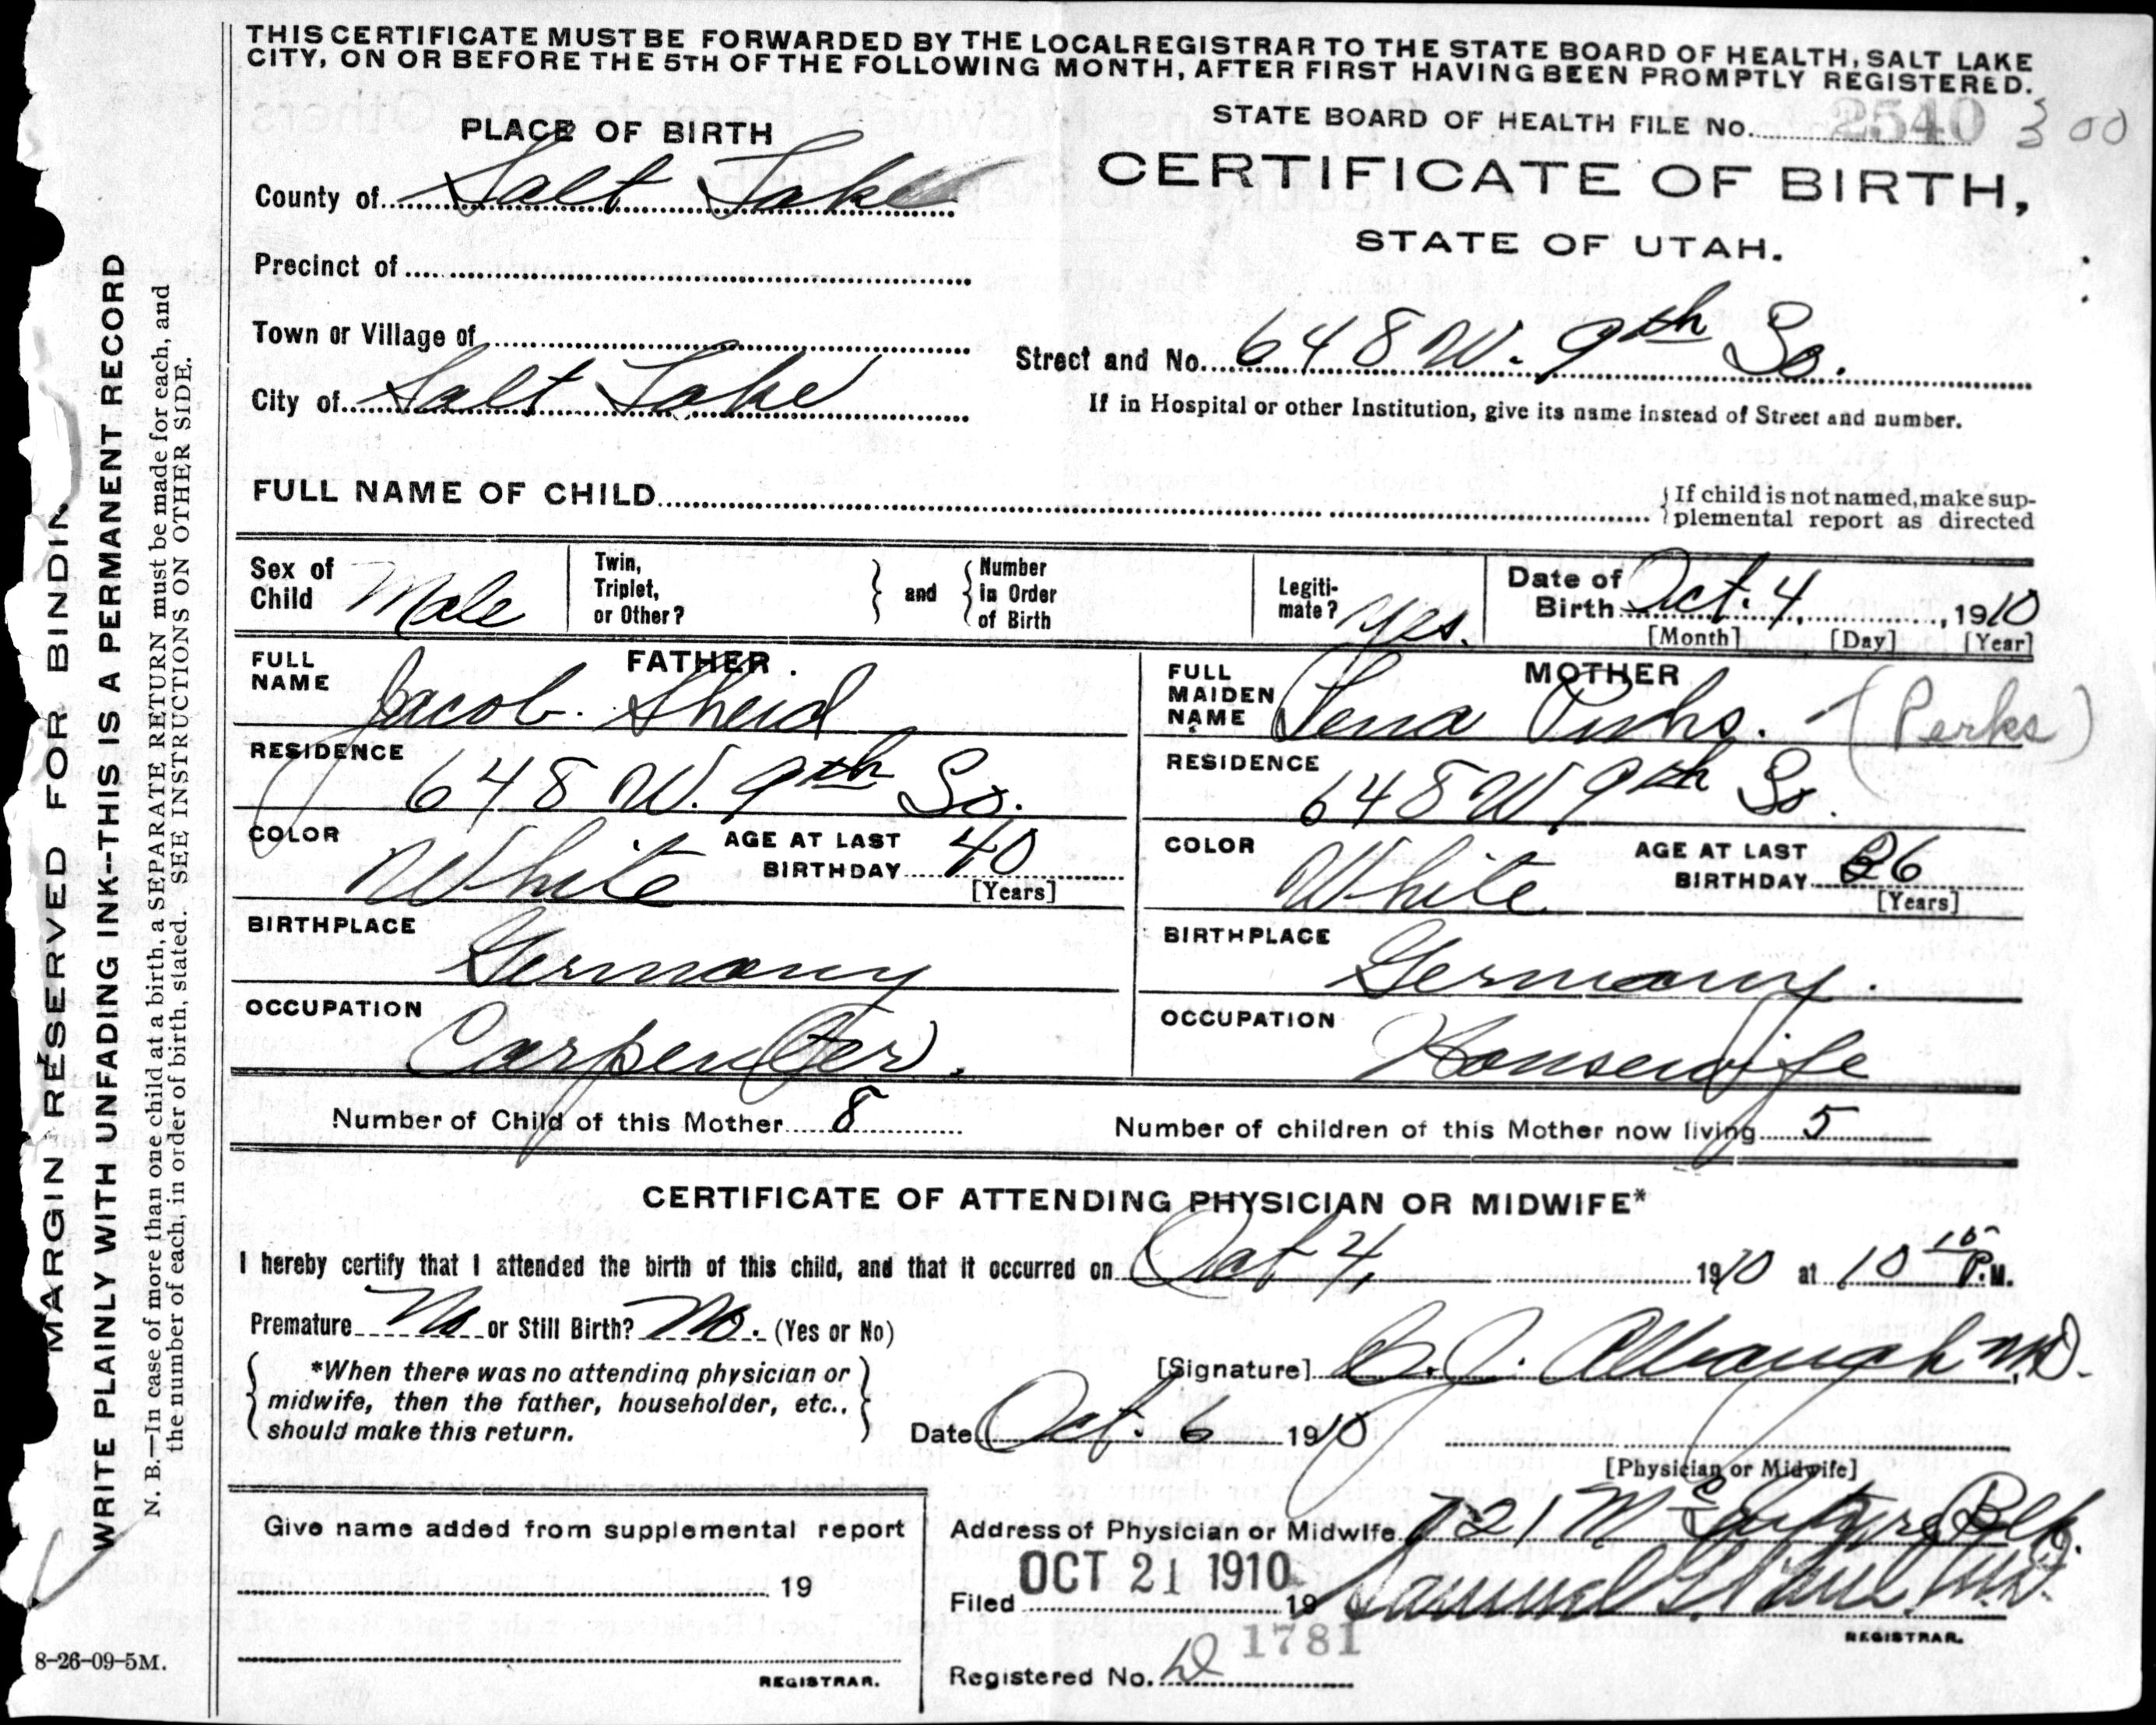 THIS CERTIFICATE MUST BE FORWARDED BY THE LOCAL REGISTRAR TO THE STATE BOARD OF HEALTH, SALT LAKE
CITY, ON OR BEFORE THE 5TH OF THE FOLLOWING MONTH, AFTER FIRST HAVING BEEN PROMPTLY REGISTERED.
STATE BOARD OF HEALTH FILE No. 2540 300
PLACE OF BIRTH
CERTIFICATE OF BIRTH,
STATE OF UTAH.
County of Salt Lake
Precinct of
Town or Village of
Street and No. 648 W. 9th So.
City of Salt Lake
If in Hospital or other Institution, give its name instead of Street and number.
FULL NAME OF CHILD
If child is not named, make sup-
plemental report as directed
Sex of Child Male
Twin, Triplet, or Other? and Number in Order of Birth
Legiti-mate? Yes.
Date of Birth Oct. 4, 1910
[Month] [Day] [Year]
FATHER
FULL NAME Jacob Sheid
RESIDENCE 648 W. 9th So.
COLOR White AGE AT LAST BIRTHDAY 40
[Years]
BIRTHPLACE Germany
OCCUPATION Carpenter.
MOTHER
FULL MAIDEN NAME Lena (Perks)
RESIDENCE 648 W. 9th So.
COLOR White AGE AT LAST BIRTHDAY 36
[Years]
BIRTHPLACE Germany.
OCCUPATION Housewife
Number of Child of this Mother 8
Number of children of this Mother now living 5
CERTIFICATE OF ATTENDING PHYSICIAN OR MIDWIFE*
I hereby certify that I attended the birth of this child, and that it occurred on Oct 4, 1910 at 10 15 P.M.
Premature No or Still Birth? No. (Yes or No)
*When there was no attending physician or
midwife, then the father, householder, etc.,
should make this return.
[Signature] Albaugh M.D.
Date Oct. 6 1910
[Physician or Midwife]
Give name added from supplemental report
19
REGISTRAR.
Address of Physician or Midwife 721 McIntyre Blk.
OCT 21 1910
Filed 19 Samuel G. Paul M.D.
REGISTRAR.
1781
Registered No.
MARGIN RESERVED FOR BINDIN
WRITE PLAINLY WITH UNFADING INK--THIS IS A PERMANENT RECORD
N. B.—In case of more than one child at a birth, a SEPARATE RETURN must be made for each, and
the number of each, in order of birth, stated. SEE INSTRUCTIONS ON OTHER SIDE.
8-26-09-5M.